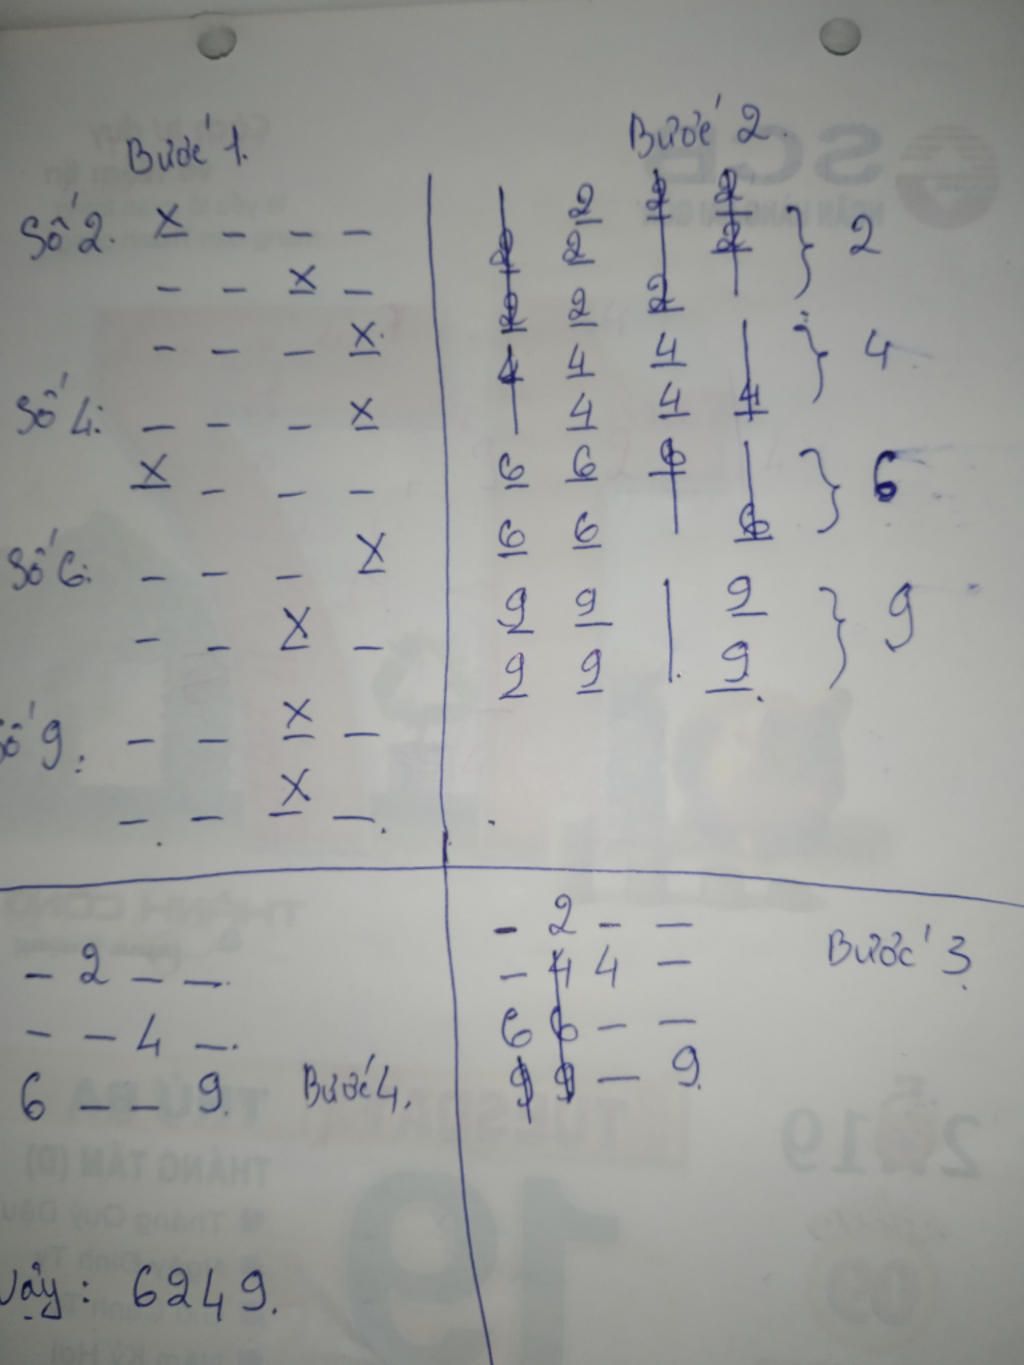 Bước 1.
Số 2. X - - -
- - X -
- - - X
Số 4: - - - X
X - - -
Số 6: - - - X
- - X -
Số 9: - - X -
- - X -
Bước 2.
2 2 2
2 2 2 } 2
2 2 2
4 4 4 } 4
4 4 4
6 6 6 } 6
6 6 6
9 9 9 } 9
9 9 9
Bước 3
- 2 - -
- 4 4 -
6 6 - -
9 9 - 9
Bước 4.
- 2 - -
- - 4 -
6 - - 9
Vậy: 6249.